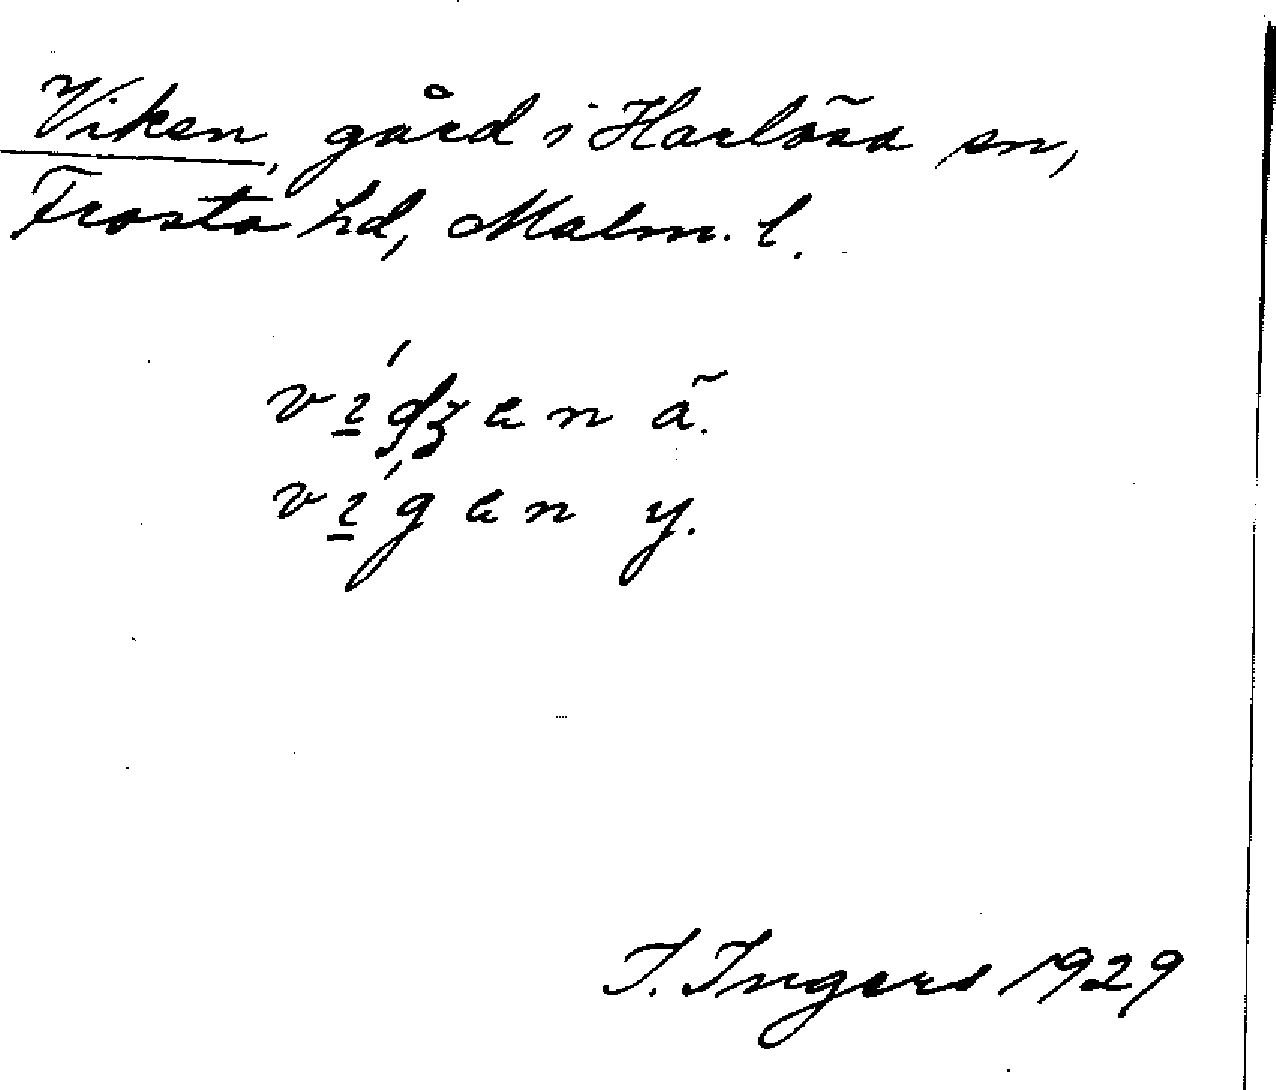 Viken, gård i Harlösa sn,
Frosta hd, Malm. l.
vı̲́dʒen ä.
vı̲́gen y.
I. Ingers 1929